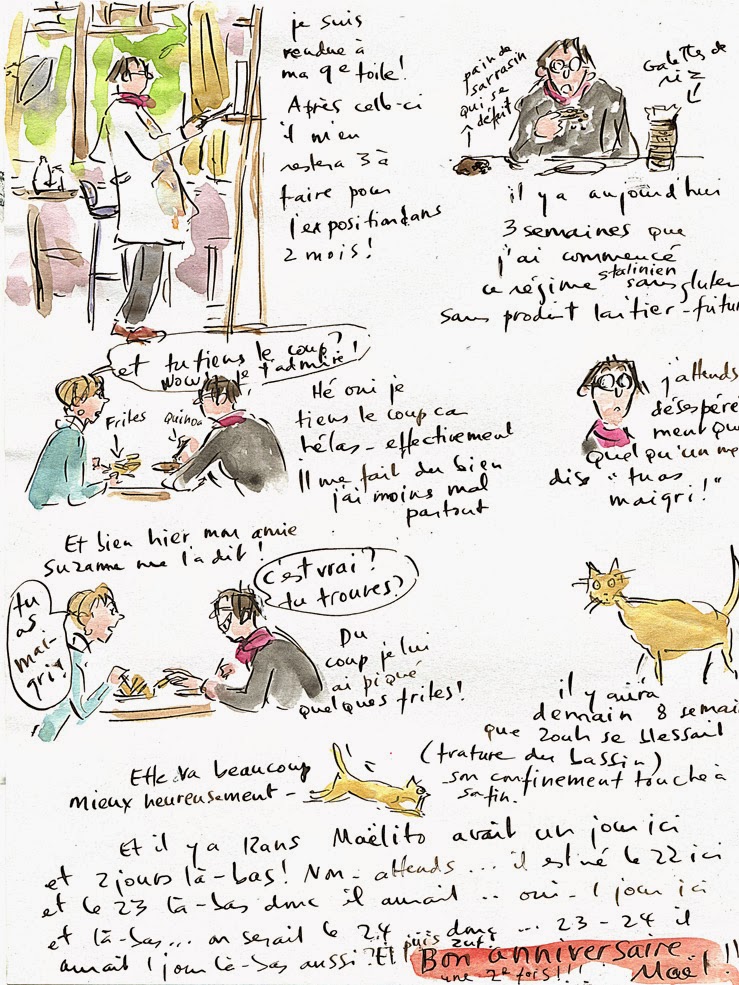 je suis
rendue à
ma 9e toile!
Après celle-ci
il m'en
restera 3 à
faire pour
l'exposition dans
2 mois!
pain de
sarrasin
qui se
défait
Galettes de
riz
il y a aujourd'hui
3 semaines que
j'ai commencé
ce régime stalinien sans gluten
sans produit laitier - futur
et tu tiens le coup?
wow je t'admire!
Frites
Quinoa
Hé oui je
tiens le coup ca
hélas - effectivement
Il me fait du bien
j'ai moins mal
partout
j'attends
désespéré
ment que
quelqu'un me
dise "tu as
maigri!"
Et bien hier mon amie
Suzanne me l'a dit!
tu
as
mai-
gri!
c'est vrai?
tu trouves?
Du
coup je lui
ai piqué
quelques frites!
il y aura
demain 8 semai
que Zouh se blessait
(frature du bassin)
son confinement touche à
sa fin.
Elle va beaucoup
mieux heureusement -
Et il y a 12 ans Maëlito avait un jour ici
et 2 jours là-bas! Non - attends ... il est né le 22 ici
et le 23 là-bas donc il aurait .. oui - 1 jour ici
et là-bas... on serait le 24 donc ... 23 - 24 il
aurait 1 jour là-bas aussi? Et puis zut!
Bon anniversaire
une 2e fois!!! Maël!!